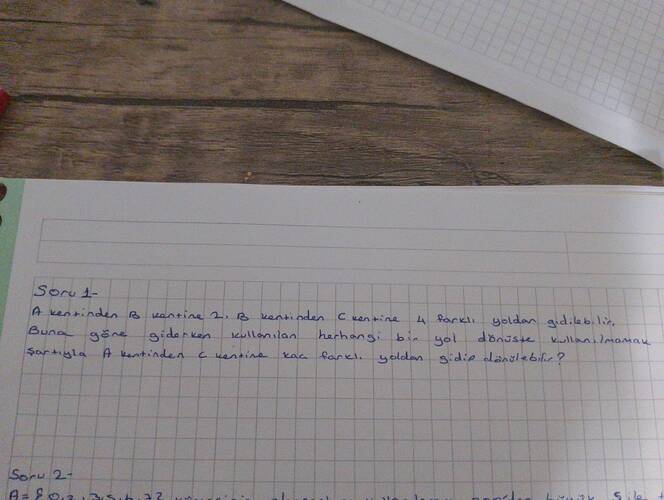 Soru 1-
A kentinden B kentine 2, B kentinden C kentine 4 farklı yoldan gidilebilir.
Buna göre giderken kullanılan herhangi bir yol dönüşte kullanılmamak
şartıyla A kentinden C kentine kaç farklı yoldan gidip dönülebilir?
Soru 2-